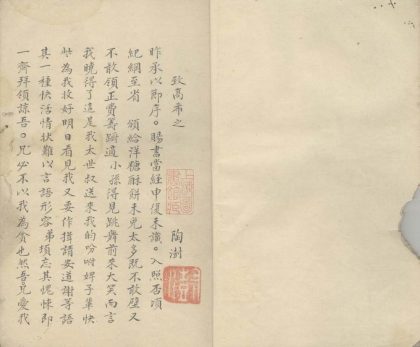 致高希之
陶澍
昨承以即序。賜書當經申復未識。入照否頃
紀綱至省 頒給洋糖酥餅未免太多既不敢璧又
不敢領正費籌躊適小孫得見跳舞前來大笑而言
我曉得了這是我太世叔送來我的吩咐婢子輩快
些為我收好明日看見我又要作揖請安道謝等語
其一種快活情狀難以言語形容弟頃忘其愧悚即
一齊拜領諒吾。兄必不以我為貪也然吾兄愛我